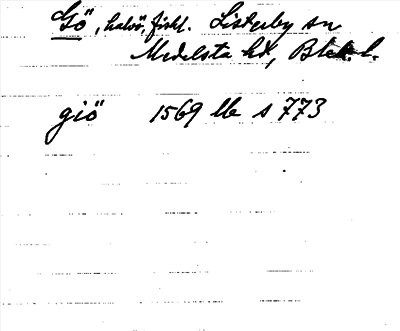 Gö, halvö, fiskl. Listerby sn
Medelsta hd, Blek. l.
giö 1569 lb s 773